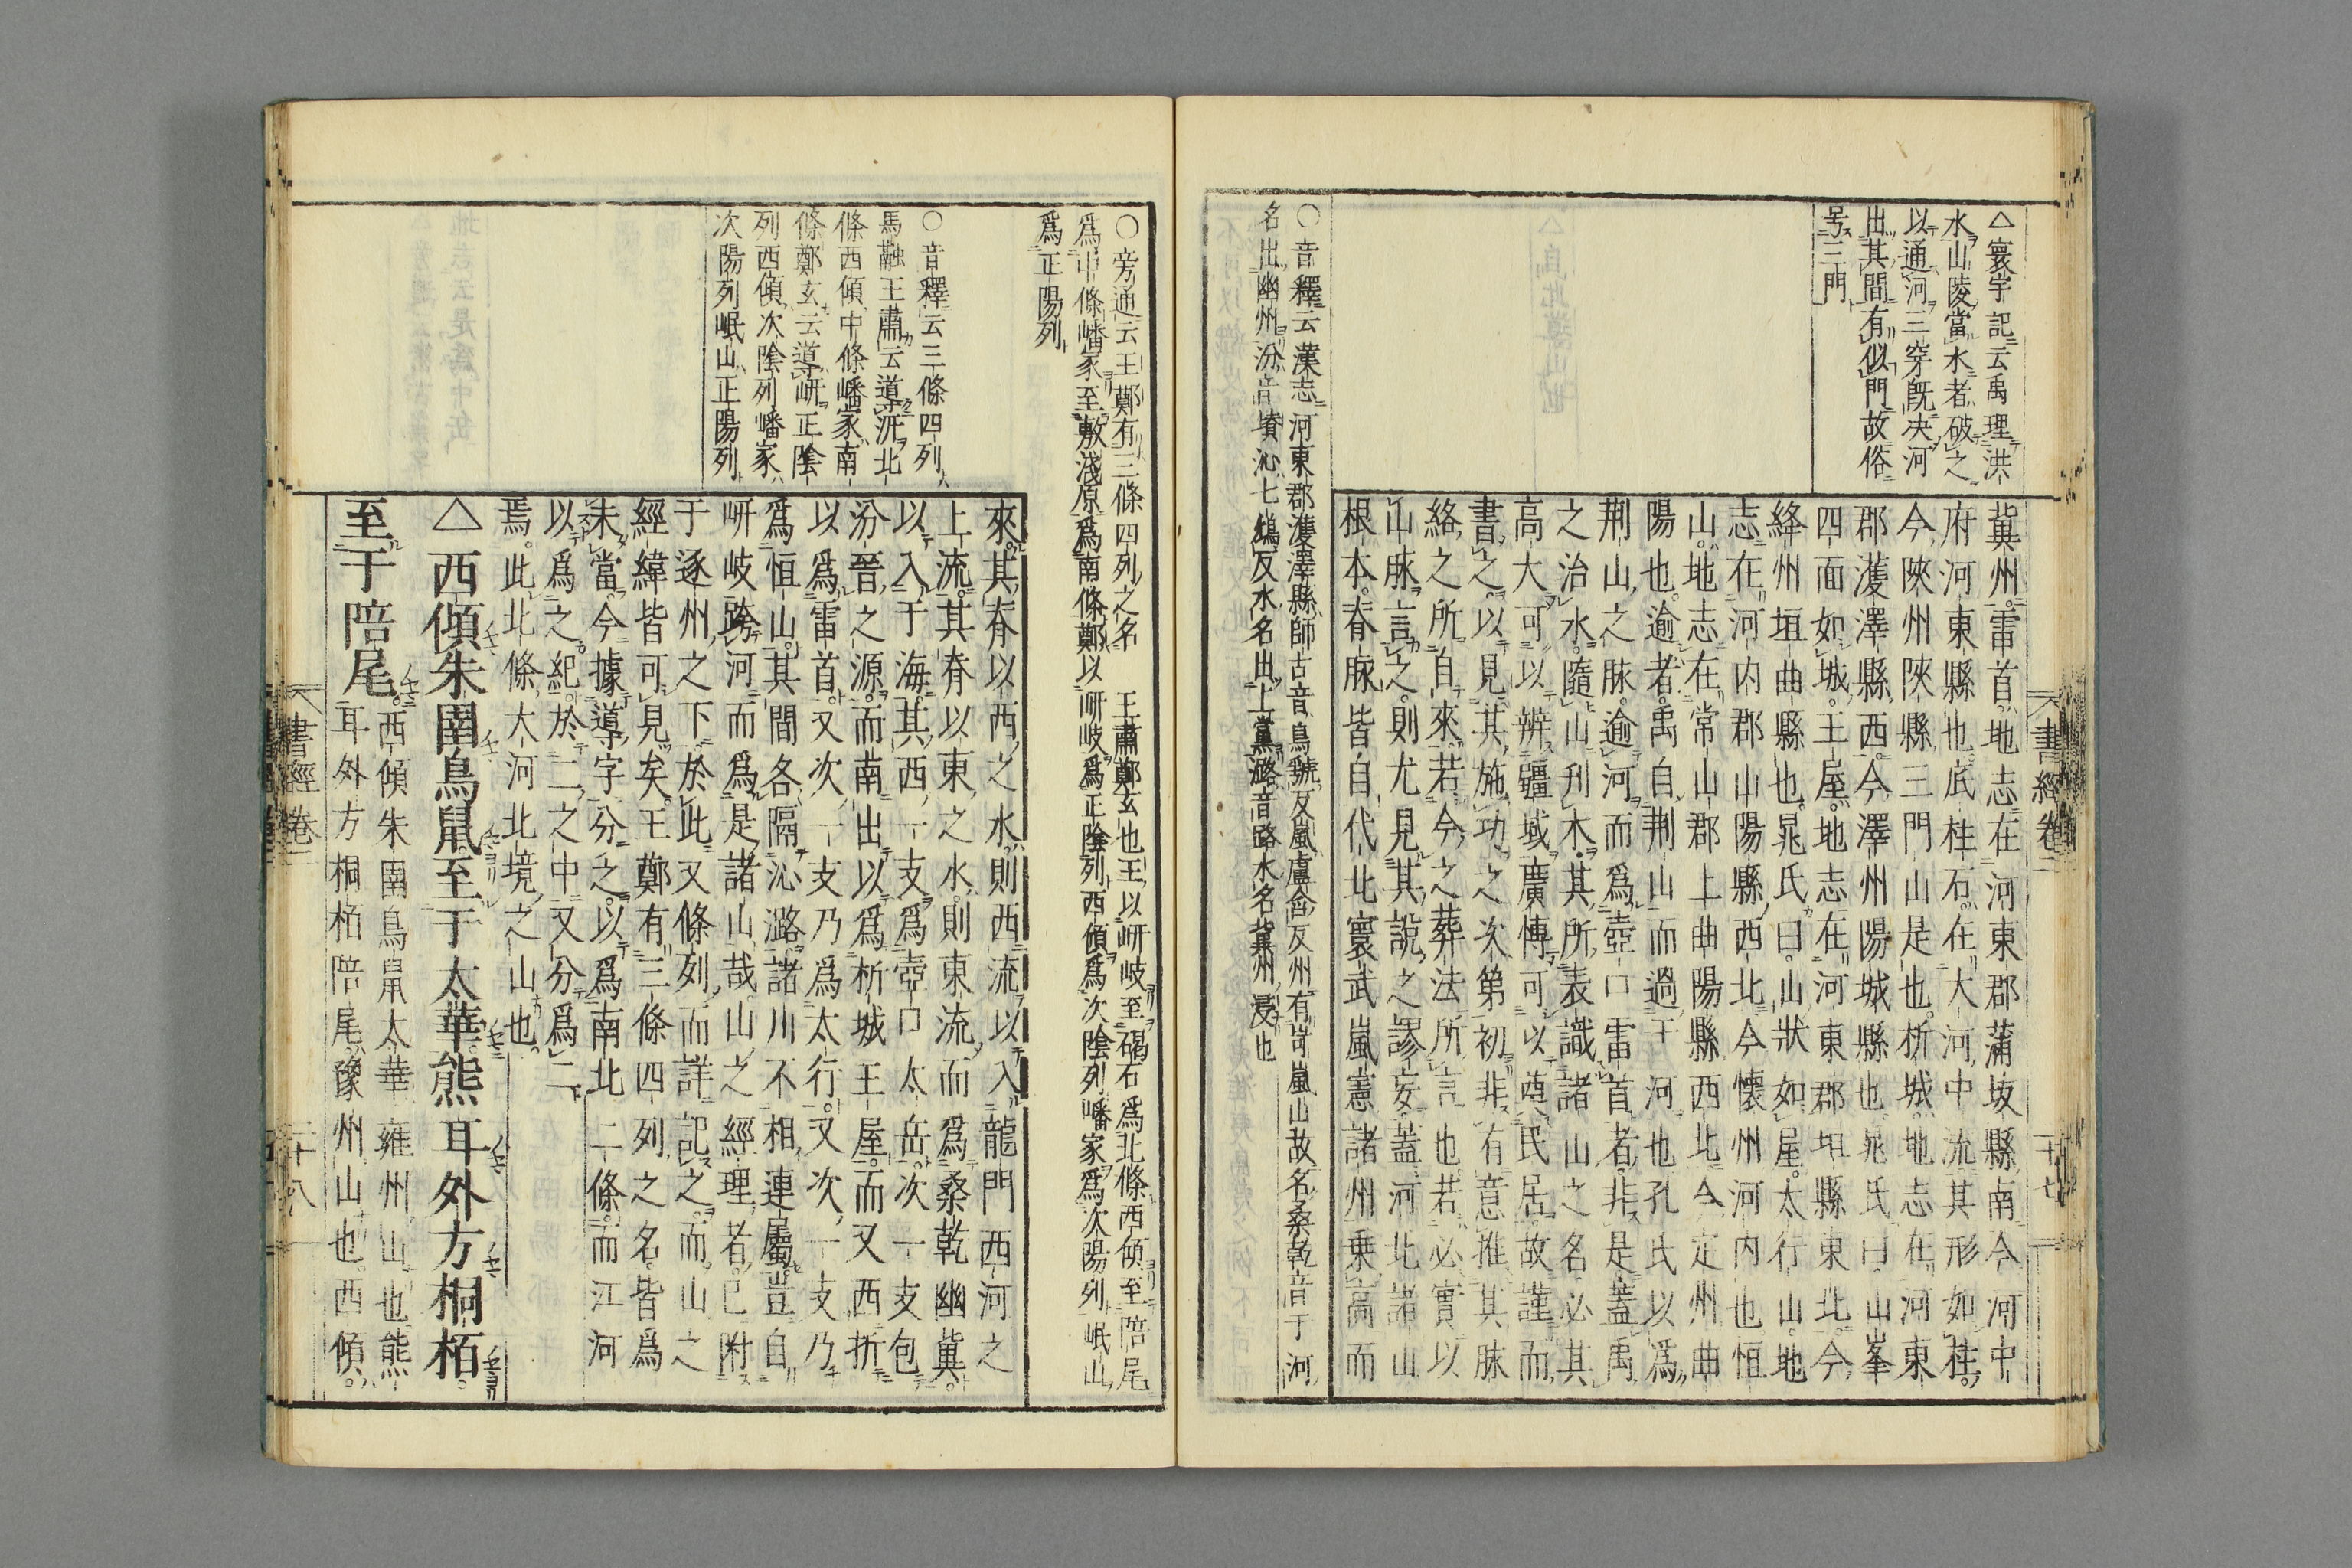 △寰宇記云禹理洪
水山陵當水者破之
以通河三穿既决河
出其間有似門故俗
号三門
冀州雷首地志在河東郡蒲坂縣南今河中
府河東縣也底柱石在大河中流其形如柱
今陝州陝縣三門山是也析城地志在河東
郡濩澤縣西今澤州陽城縣也晁氏曰山峯
四面如城王屋地志在河東郡垣縣東北今
絳州垣曲縣也晁氏曰山狀如屋太行山地
志在河内郡山陽縣西北今懷州河内也恒
山地志在常山郡上曲陽縣西北今定州曲
陽也逾者禹自荆山而過于河也孔氏以爲
荆山之脉逾河而爲壺口雷首者非是蓋禹
之治水隨山刋木其所表識諸山之名必其
高大可以辨疆域廣博可以奠民居故謹而
書之以見其施功之次第初非有意推其脉
絡之所自來若今之葬法所言也若必實以
山脉言之則尤見其說之謬妄蓋河北諸山
根本脊脉皆自代北寰武嵐憲諸州乗高而
○音釋云漢志河東郡濩澤縣師古音烏虢反嵐盧含反州有岢嵐山故名桑乾音干河
名出幽州汾音墳沁七鴆反水名出上黨潞音路水名冀州浸也
書經卷二
十七
○旁通云王鄭有三條四列之名 王肅鄭玄也王以岍岐至碣石爲北條西傾至陪尾
爲中條嶓冢至敷淺原爲南條鄭以岍岐爲正陰列西傾爲次陰列嶓冢爲次陽列岷山
爲正陽列
○音釋云三條四列
馬融王肅云導汧北
條西傾中條嶓冢南
條鄭玄云導岍正陰
列西傾次陰列嶓冢
次陽列岷山正陽列
來其脊以西之水則西流以入龍門西河之
上流其脊以東之水則東流而爲桑乾幽冀
以入于海其西一支爲壺口太岳次一支包
汾晉之源而南出以爲析城王屋而又西折
以爲雷首又次一支乃爲太行又次一支乃
爲恒山其間各隔沁潞諸川不相連屬豈自
岍岐跨河而爲是諸山哉山之經理者已附
于逐州之下於此又條列而詳記之而山之
經緯皆可見矣王鄭有三條四列之名皆爲
未當今據導字分之以爲南北二條而江河
以爲之紀於二之中又分爲二
焉此北條大河北境之山也
△西傾朱圉鳥鼠至于太華熊耳外方桐栢
至于陪尾西傾朱圉鳥鼠太華雍州山也熊
耳外方桐栢陪尾豫州山也西傾
書經卷二
二十八